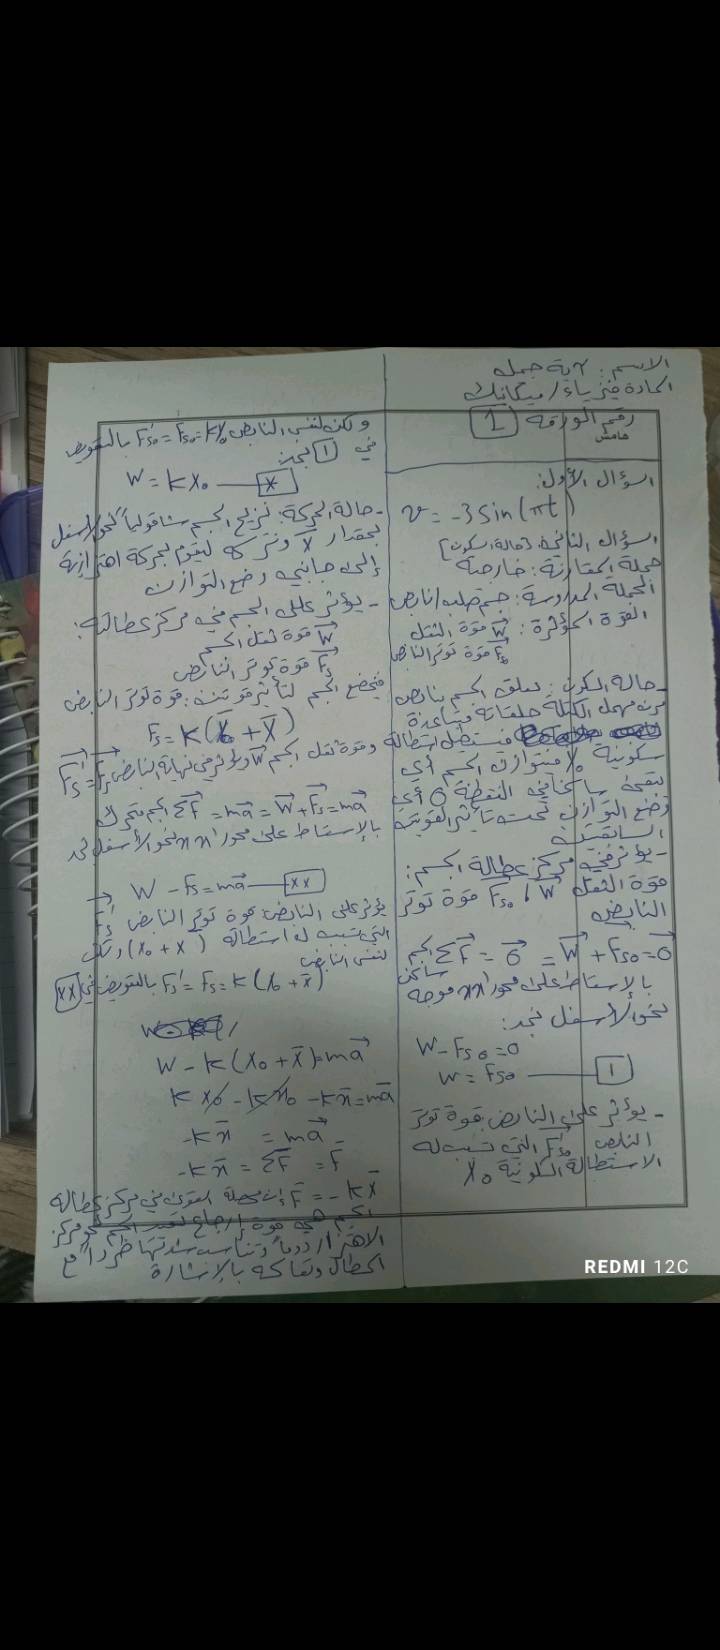 الاسم: آية جمله
المادة فيزياء / ميكانيك
رقم الورقة 1
هامش
السؤال الأول:
v = -3 sin(πt)
السؤال الثاني: [حالة السكون]
جملة المقارنة: خارجية
الجملة المدروسة: جسم صلب / نابض
القوة المؤثرة: W قوة الثقل
Fs₀ قوة توتر النابض
- حالة السكون: يعلق الجسم بنابض
مرن مهمل الكتلة حلقاته متباعدة
فيستطيل استطالة
سكونية x₀ فيتوازن الجسم أي
يبقى ساكناً في النقطة O أي
وضع التوازن تحت تأثير القوتين
السابقتين
- يؤثر في مركز عطالة الجسم:
قوة الثقل W، Fs₀ قوة توتر
النابض
الجسم ساكن ΣF = 0 = W + Fs₀ = 0
بالإسقاط على محور xx' موجه
نحو الأسفل نجد:
W - Fs₀ = 0
W = Fs₀ — 1
- يؤثر على النابض قوة توتر
النابض F's₀ التي تسبب له
الاستطالة السكونية x₀
ولكن لنفس النابض F's₀ = Fs₀ = kx₀ بالتعويض
في 1 نجد:
W = kx₀ — *
- حالة الحركة: نزيح الجسم شاقولياً نحو الأسفل
بمقدار x ونتركه ليقوم بحركة اهتزازية
إلى جانبي وضع التوازن
- يؤثر على الجسم في مركز عطالته:
W قوة ثقل الجسم
Fs قوة توتر النابض
فيخضع الجسم لتأثير قوتين: قوة توتر النابض
Fs = k(x₀ + x)
وقوة ثقل الجسم W ويؤثر في نهاية النابض F's = Fs
الجسم يتحرك ΣF = ma = W + Fs = ma
بالإسقاط على محور xx' نحو الأسفل نجد
W - Fs = ma — **
يؤثر على النابض قوة توتر النابض F's
التي تسبب له استطالة (x₀ + x) ولكن
لنفس النابض
F's = Fs = k(x₀ + x) بالتعويض في **
W - k(x₀ + x) = ma
kx₀ - kx₀ - kx = ma
-kx = ma
-kx = ΣF = F
F = -kx إن محصلة القوى في مركز عطالة
الجسم هي قوة إرجاع تعيد الجسم نحو مركز
الاهتزاز دوماً وتتناسب شدتها طرداً مع
المطال وتعاكسه بالإشارة
REDMI 12C